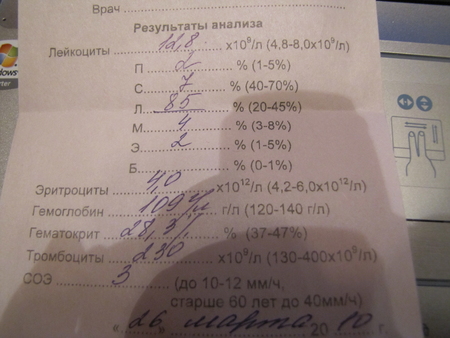 Врач
Результаты анализа
Лейкоциты 12,8 x10⁹/л (4,8-8,0x10⁹/л)
П 2 % (1-5%)
С 7 % (40-70%)
Л 85 % (20-45%)
М 4 % (3-8%)
Э 2 % (1-5%)
Б % (0-1%)
Эритроциты 4,0 x10¹²/л (4,2-6,0x10¹²/л)
Гемоглобин 109 г/л (120-140 г/л)
Гематокрит 28,3 % (37-47%)
Тромбоциты 230 x10⁹/л (130-400x10⁹/л)
СОЭ 3 (до 10-12 мм/ч,
старше 60 лет до 40мм/ч)
«26» марта 2010 г.